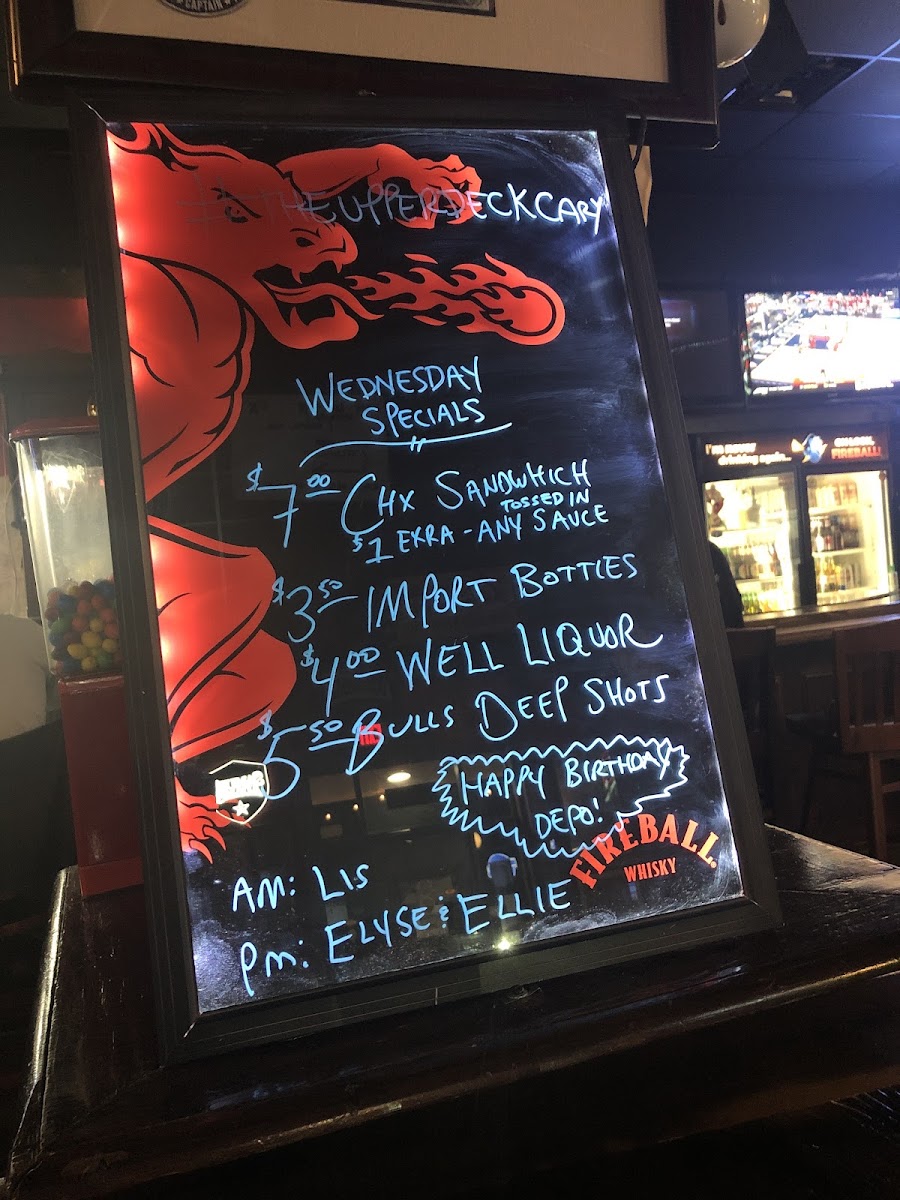 CAPTAIN
#THEUPPERDECKCARY
WEDNESDAY
SPECIALS
$7.00 CHX SANDWHICH
TOSSED IN
$1 EXRA - ANY SAUCE
$3.50 IMPORT BOTTLES
$4.00 WELL LIQUOR
$5.50 BULLS DEEP SHOTS
HAPPY BIRTHDAY
DEPO!
FIREBALL
WHISKY
AM: LIS
PM: ELYSE & ELLIE
FIREBALL